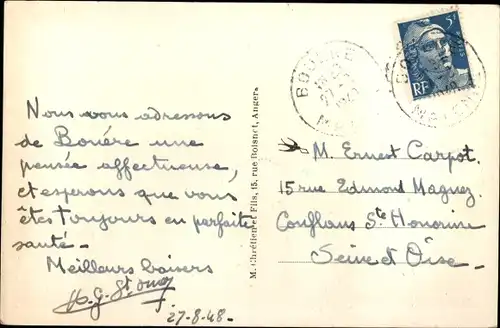 Nous vous adressons
de Bouère une
pensée affectueuse,
et espérons que vous
êtes toujours en parfaite
santé -
Meilleurs baisers
27-8-48.
M. Chrétien et Fils, 15, rue Boisnet, Angers
BOUÈRE
27
5F
RF
M. Ernest Carpot.
15 rue Edmond Magnez
Conflans Ste Honorine
Seine et Oise -